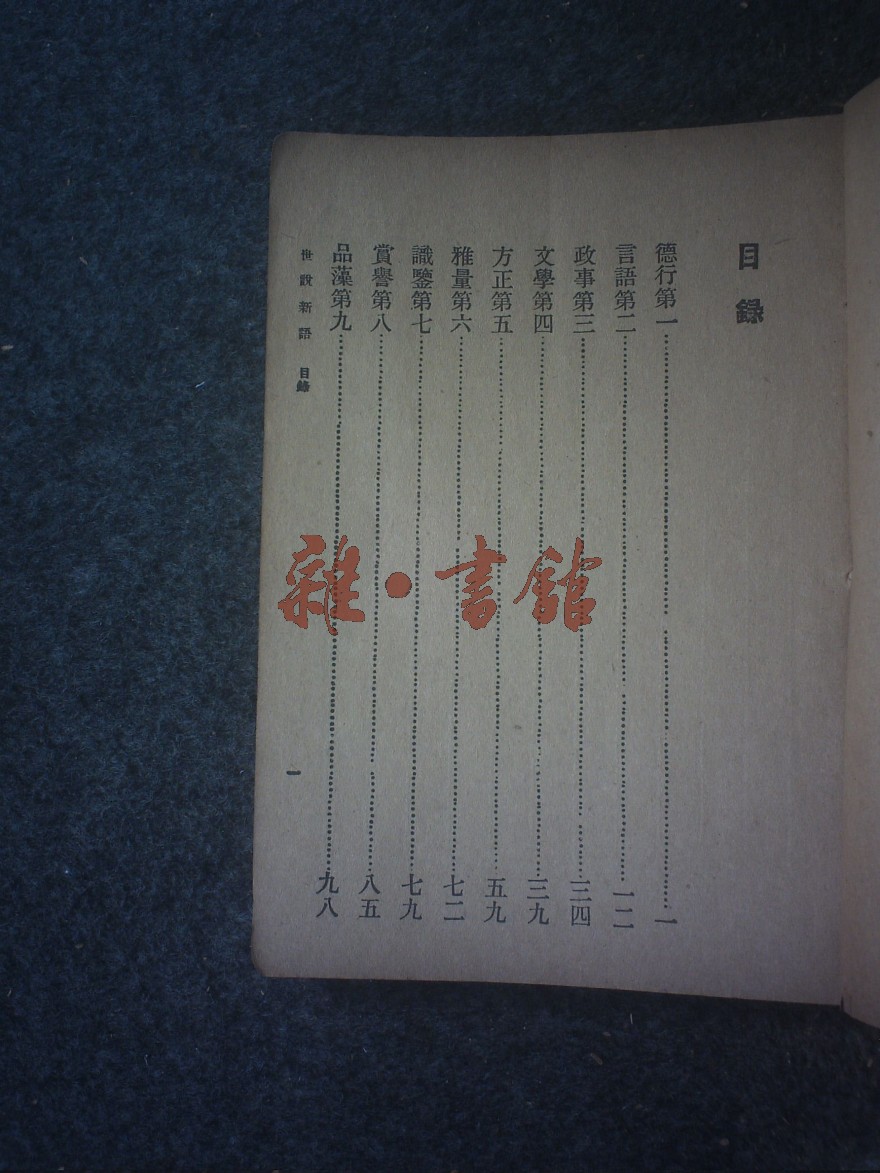 目錄
德行第一……一
言語第二……一二
政事第三……三四
文學第四……三九
方正第五……五九
雅量第六……七二
識鑒第七……七九
賞譽第八……八五
品藻第九……九八
世說新語 目錄 一
雜·書館